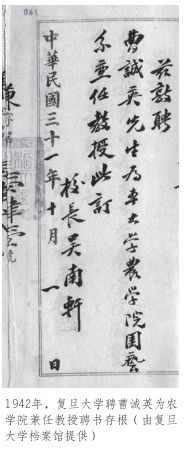 061
茲敦聘
曹誠英先生為本大學農學院園藝
系兼任教授此訂
校長吳南軒
中華民國三十一年十月一日
1942年，复旦大学聘曹诚英为农
学院兼任教授聘书存根（由复旦
大学档案馆提供）